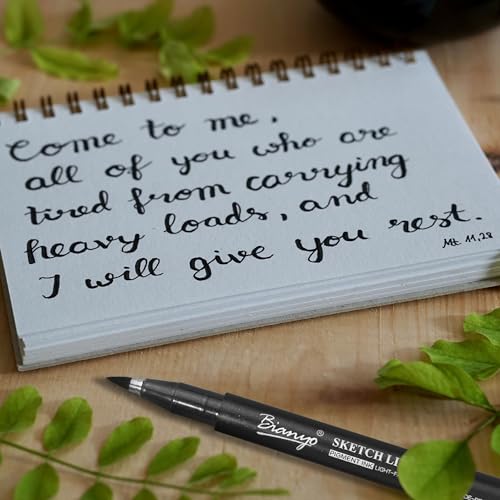 Come to me,
all of you who are
tired from carrying
heavy loads, and
I will give you rest.
Mt. 11,28
Bianyo ® SKETCH LI
PIGMENT INK LIGHT-F